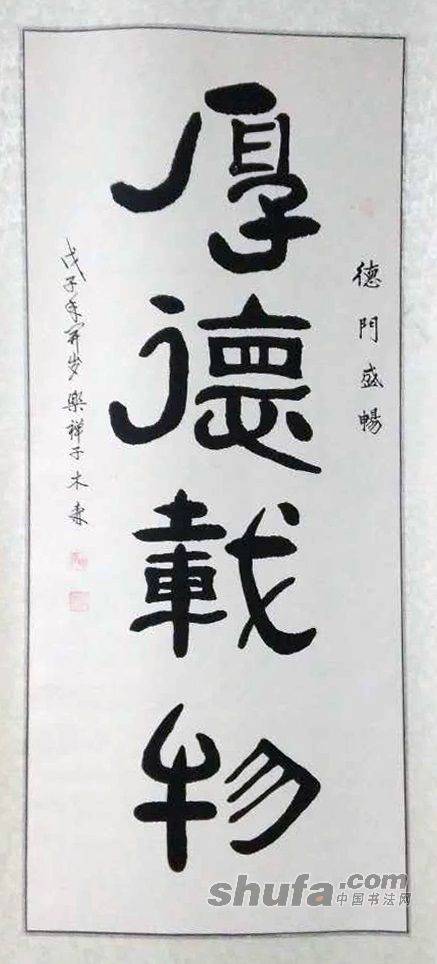 德門盛暢
厚德載物
戊子年開岁樂禅子木森
shufa.com
中国书法网